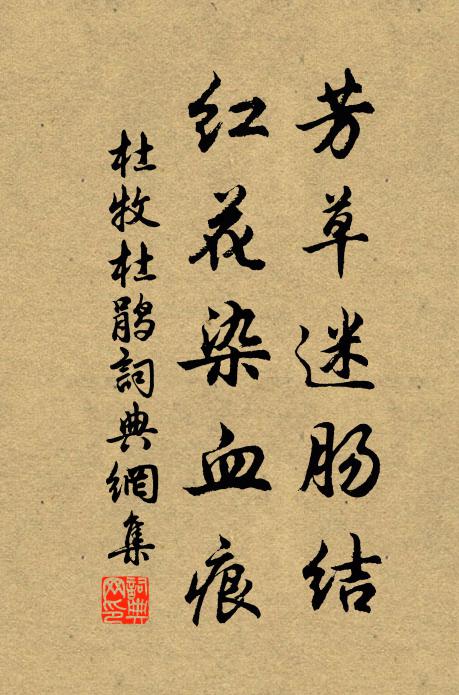 芳草迷肠结
红花染血痕
杜牧杜鹃詞典網集
詞典网印